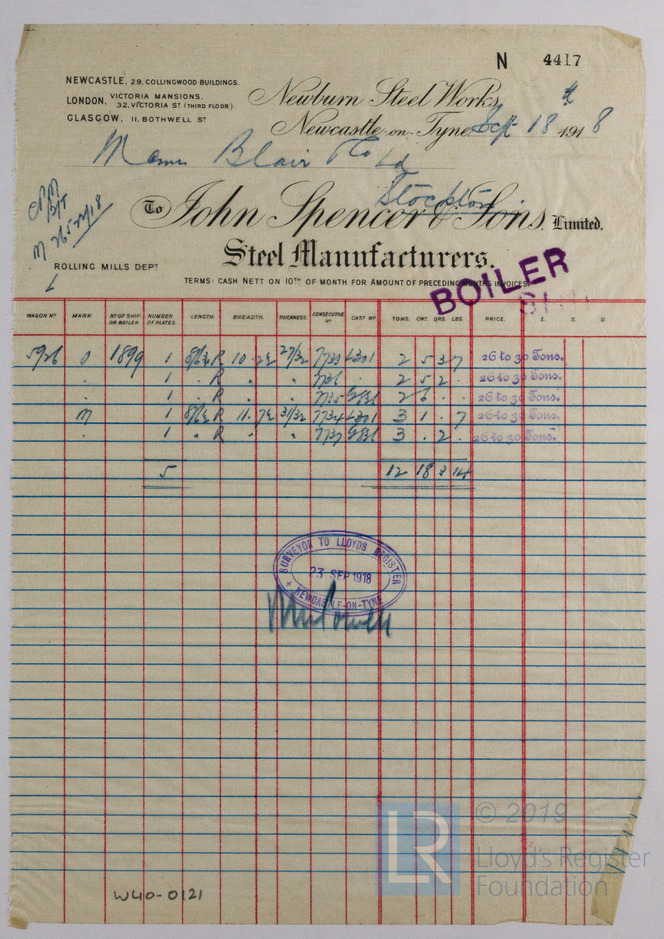 N 4417
NEWCASTLE, 29, COLLINGWOOD BUILDINGS.
LONDON, VICTORIA MANSIONS.
32, VICTORIA ST (THIRD FLOOR)
GLASGOW, 11, BOTHWELL ST
Newburn Steel Works,
Newcastle-on-Tyne Sept 18 1918
Blair & Co Ld
Stockton
To John Spencer & Sons, Limited.
Steel Manufacturers.
ROLLING MILLS DEPT
TERMS: CASH NETT ON 10TH OF MONTH FOR AMOUNT OF PRECEDING MONTH'S INVOICES.
BOILER
WAGON NO. MARK. NO OF SHIP OR BOILER. NUMBER OF PLATES LENGTH. BREADTH. THICKNESS CONSECUTIVE NO CAST NO TONS. CWT. QRS. LBS. PRICE. £. S. D
5926 O 1899 1 R 27/32 2 5 3 7 26 to 30 Tons.
. . 1 . R . . 2 5 2 . 26 to 30 Tons.
. . 1 . R . . 2 6 . . 26 to 30 Tons.
M 1 R 31/32 7734 3 1 . 7 26 to 30 Tons.
. . 1 . R . . 7737 3 . 2 . 26 to 30 Tons.
5 12 18 3 14
SURVEYOR TO LLOYDS REGISTER
23 SEP 1918
NEWCASTLE-ON-TYNE
W40-0121
LR © 2019
Lloyd's Register
Foundation